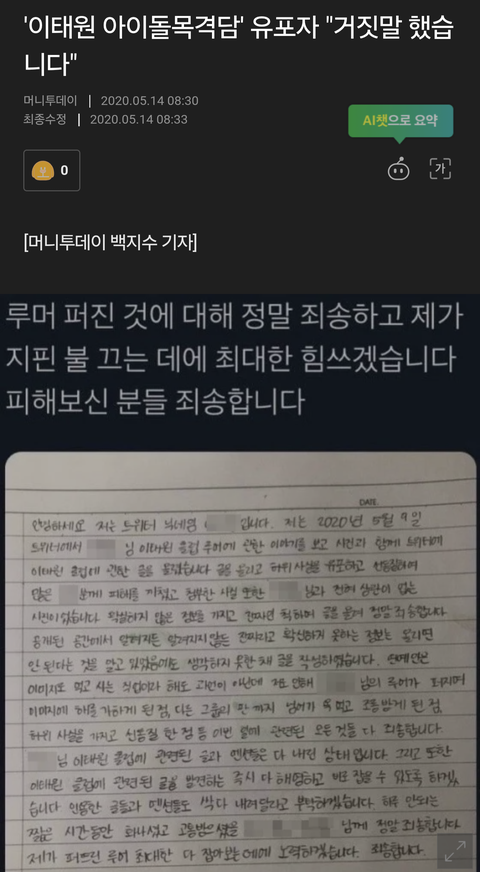 '이태원 아이돌목격담' 유포자 "거짓말 했습
니다"
머니투데이 | 2020.05.14 08:30
최종수정 | 2020.05.14 08:33
AI챗으로 요약
0
가
[머니투데이 백지수 기자]
루머 퍼진 것에 대해 정말 죄송하고 제가
지핀 불 끄는 데에 최대한 힘쓰겠습니다
피해보신 분들 죄송합니다
DATE
안녕하세요 저는 트위터 닉네임 입니다. 저는 2020년 5월 9일
트위터에서 님 이태원 클럽 루머에 관한 이야기를 보고 사진과 함께 트위터에
이태원 클럽에 관한 글을 올렸습니다 글을 올리고 허위 사실을 유포하고 선동질하여
많은 분께 피해를 끼쳤고 첨부한 사진 또한 님과 전혀 상관이 없는
사진이었습니다. 확실하지 않은 정보를 가지고 진짜인 척 하여 글을 올려 정말 죄송합니다
공개된 공간에서 알려지든 알려지지않든 진짜라고 확신하지 못하는 정보는 올리면
안 된다는 것을 알고 있었음에도 생각하지 못한 채 글을 작성하였습니다. 연예인은
이미지로 먹고 사는 직업이라 해도 과언이 아닌데 저로 인해 님의 루머가 퍼지며
이미지에 해를 가하게 된 점, 다른 그룹의 팬까지 넘어가 욕 먹고 조롱받게 된 점,
허위 사실을 가지고 선동질 한 점 등 이번 일에 관련된 모든 것들 다 죄송합니다.
님 이태원 클럽에 관련된 글과 멘션들은 다 내린 상태입니다. 그리고 또한
이태원 클럽에 관련된 글을 발견하는 즉시 다 해명하고 바로 잡을 수 있도록 하겠
습니다 인용한 글들과 멘션들도 싹 다 내려달라고 부탁하겠습니다. 하루 안되는
짧은 시간동안 화나셨고 고통받으셨을 님께 정말 죄송합니다.
제가 퍼뜨린 루머 최대한 다 잡아보는데에 노력하겠습니다. 죄송합니다.